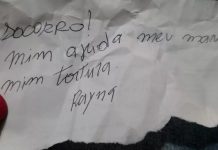 SOCORRO!
mim ajuda meu
mim tortura.
Rayna